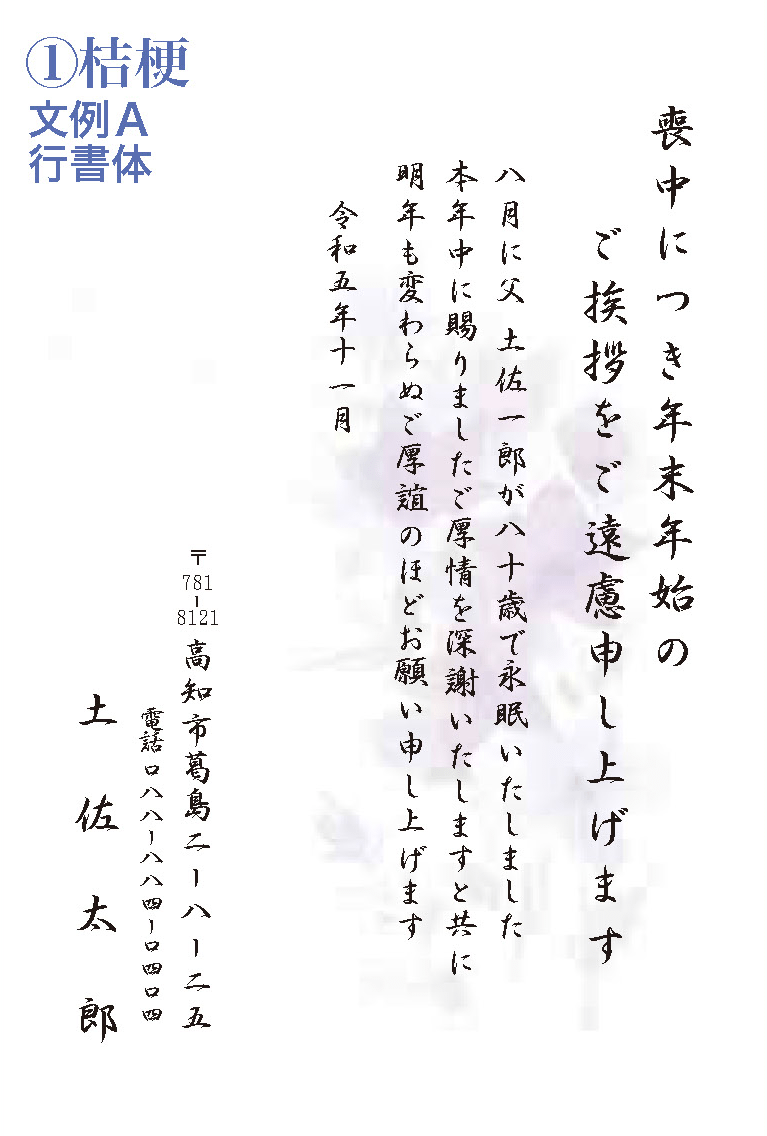 ①桔梗
文例A
行書体
喪中につき年末年始の
ご挨拶をご遠慮申し上げます
八月に父 土佐一郎が八十歳で永眠いたしました
本年中に賜りましたご厚情を深謝いたしますと共に
明年も変わらぬご厚誼のほどお願い申し上げます
令和五年十一月
〒781-8121 高知市葛島二ー八ー二五
電話〇八八ー八八四ー〇四〇四
土佐太郎